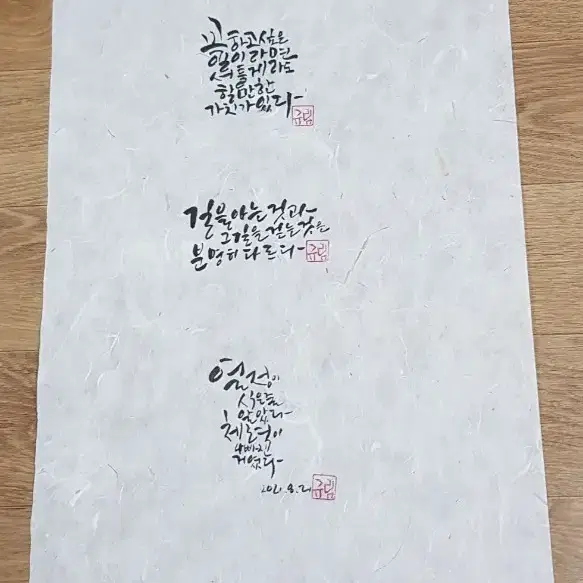 꼭 하고 싶은
일이라면
서툴게라도
할만한
가치가 있다
규림
길을 아는 것과
그 길을 걷는 것은
분명히 다르다
규림
열정이
식은 줄
알았다
체력이
빠진
거였다
2021. 8. 21
규림